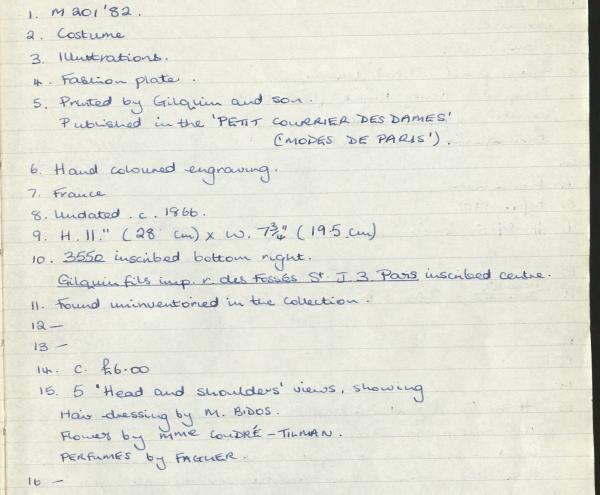 1. M 201 '82.
2. Costume
3. Illustrations.
4. Fashion plate.
5. Printed by Gilquin and son.
Published in the 'PETIT COURRIER DES DAMES'
('MODES DE PARIS').
6. Hand coloured engraving.
7. France
8. Undated. c. 1866.
9. H. 11." (28 cm) x W. 7¾" (19.5 cm)
10. 3550 inscribed bottom right.
Gilquin fils imp. r. des Fossés St. J. 3. Paris inscribed centre.
11. Found uninventoried in the collection.
12 —
13 —
14. C. £6.00
15. 5 'Head and shoulders' views, showing
Hair dressing by M. BIDOS.
Flowers by Mme COUDRÉ-TILMAN.
PERFUMES by FAGUER.
16 —